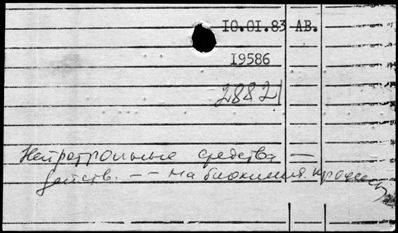 10.01.83 АВ.
19586
28821
Нейротропные средства —
действ. — — на биохимич. процессы